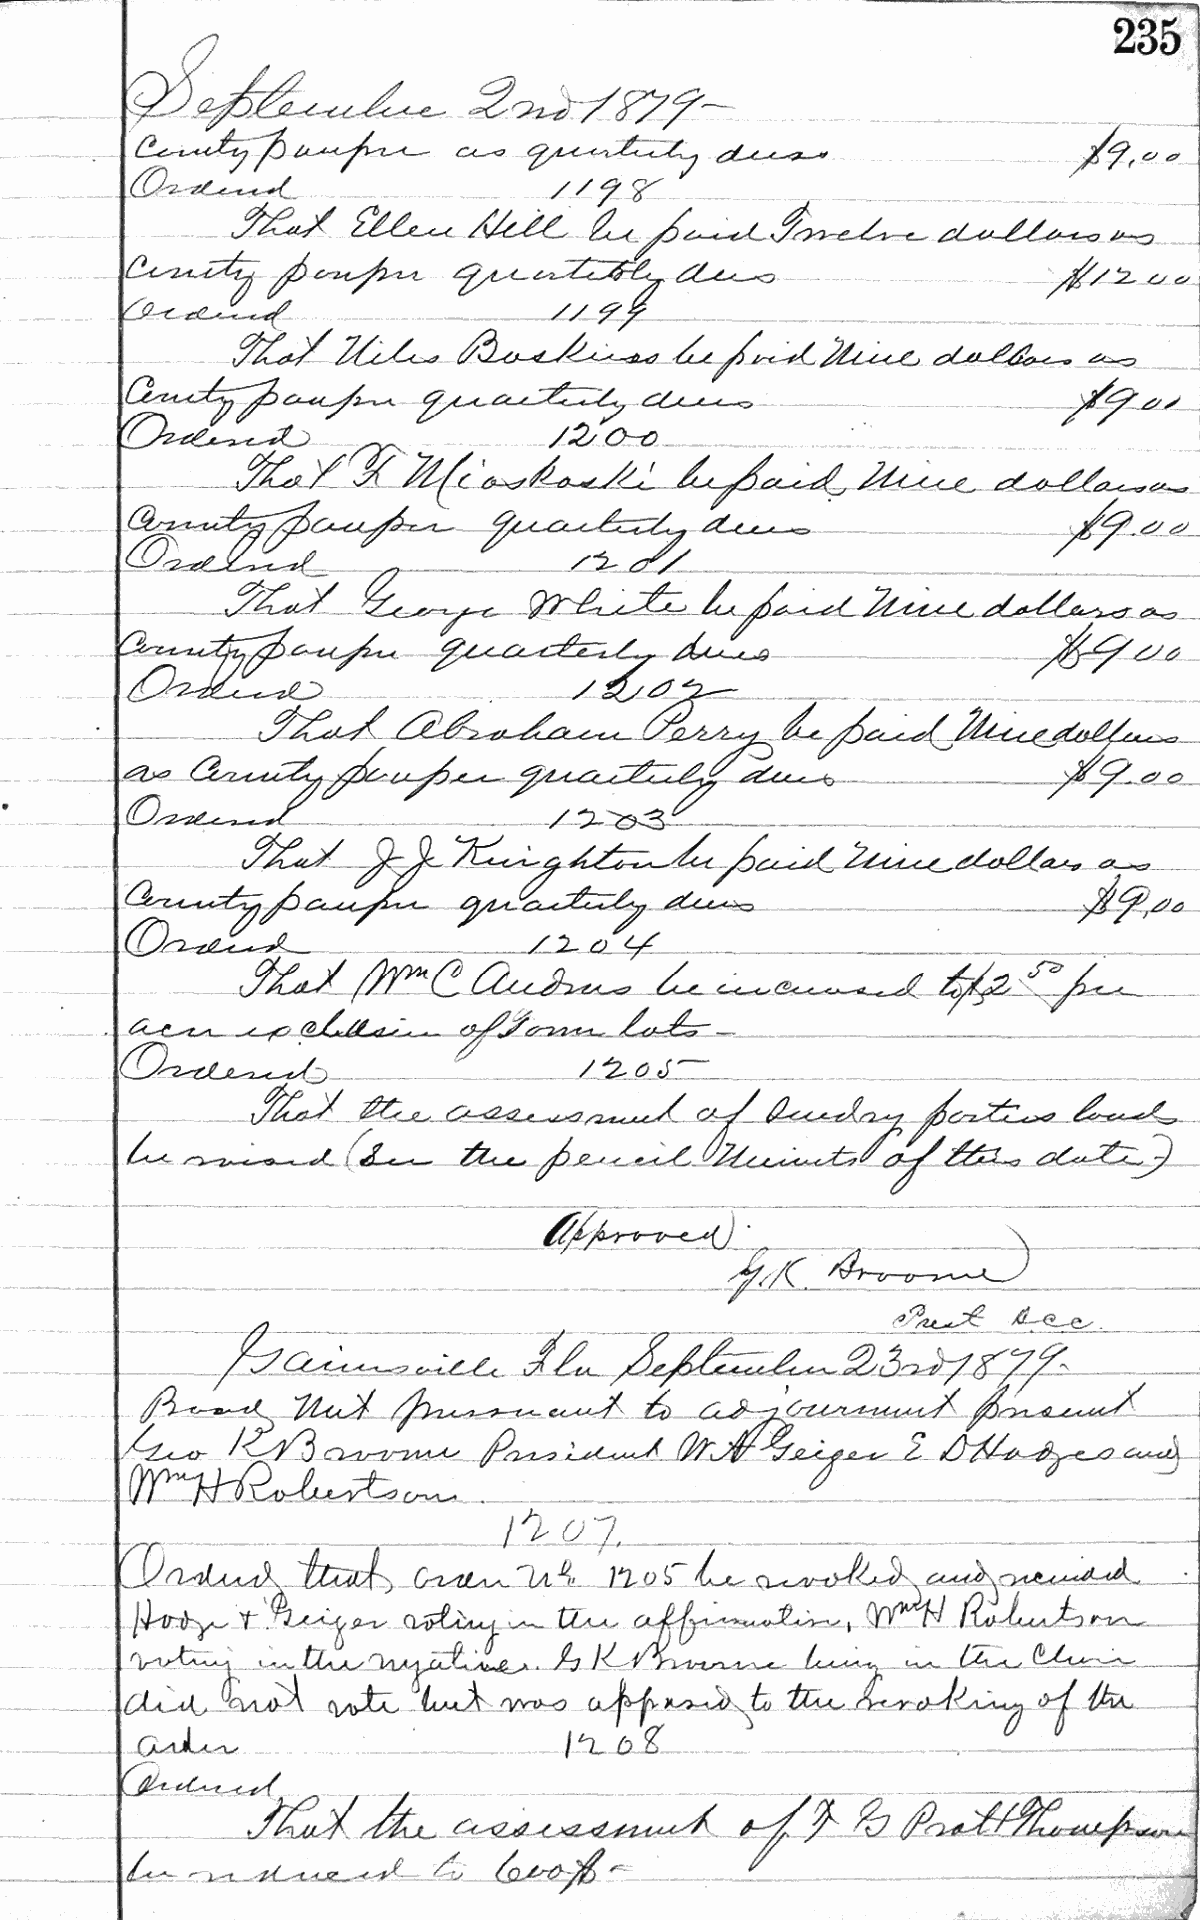 235
September 2nd 1879-
County pauper as quarterly dues $9,00
Ordered 1198
That Ellen Hill be paid Twelve dollars as
County pauper quarterly dues $12 00
Ordered 1199
That Niles Baskins be paid Nine dollars as
County pauper quarterly dues $9 00
Ordered 1200
That F Mioskoski be paid Nine dollars as
County pauper quarterly dues $9.00
Ordered 1201
That George White be paid Nine dollars as
County pauper quarterly dues $9 00
Ordered 1202
That Abraham Perry be paid Nine dollars
as County pauper quarterly dues $9.00
Ordered 1203
That J J Knighton be paid Nine dollars as
County pauper quarterly dues $9,00
Ordered 1204
That Wm C Andrus be increased to $2 50 per
acre exclusive of Town lots-
Ordered 1205
That the assessment of Sundry parties lands
be raised (See the pencil Minuts of this date)
Approved
G.K. Broome
Prest B.C.C.
Gainesville Fla September 23rd 1879-
Board Met pursuant to adjournment present
Geo K Broome President W A Geiger E D Hodges and
Wm H Robertson.
1207.
Ordered that order No 1205 be revoked and rescinded
Hodge & Geiger voting in the affirmative, Wm H Robertson
voting in the negative. G K Broome being in the Chair
did not vote but was opposed to the revoking of the
order 1208
Ordered
That the assessment of F G Pratt Thompson
be reduced to 600$-